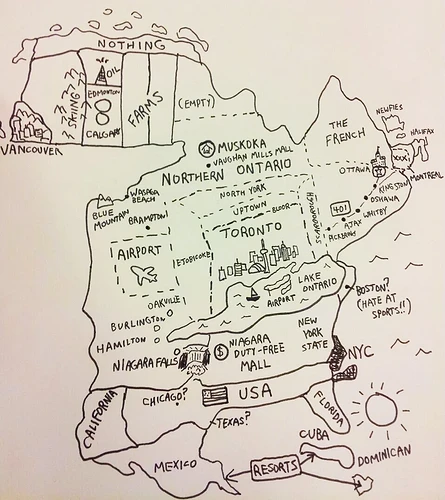 NOTHING
VANCOUVER
SKIING
OIL
EDMONTON
CALGARY
FARMS
(EMPTY)
THE
FRENCH
NEWFIES
HALIFAX
XXX!
MONTREAL
OTTAWA
KINGSTON
OSHAWA
WHITBY
AJAX
PICKERING
401
MUSKOKA
VAUGHAN MILLS MALL
NORTHERN ONTARIO
WASAGA
BEACH
BLUE
MOUNTAIN
BRAMPTON
NORTH YORK
UPTOWN
BLOOR
SCARBOROUGH
TORONTO
ETOBICOKE
AIRPORT
LAKE
ONTARIO
AIRPORT
BOSTON?
(HATE AT
SPORTS!!)
OAKVILLE
BURLINGTON
HAMILTON
NIAGARA FALLS
$
NIAGARA
DUTY-FREE
MALL
NEW
YORK
STATE
NYC
USA
CALIFORNIA
CHICAGO?
TEXAS?
FLORIDA
MEXICO
RESORTS
CUBA
DOMINICAN